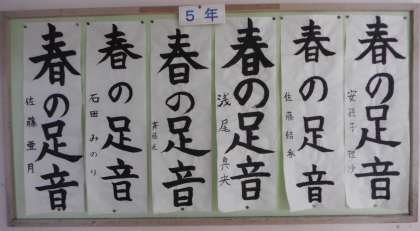 5年
春の足音
安孫子 理沙
春の足音
佐藤 結香
春の足音
浅尾 真央
春の足音
春の足音
石田 みのり
春の足音
佐藤 亜月